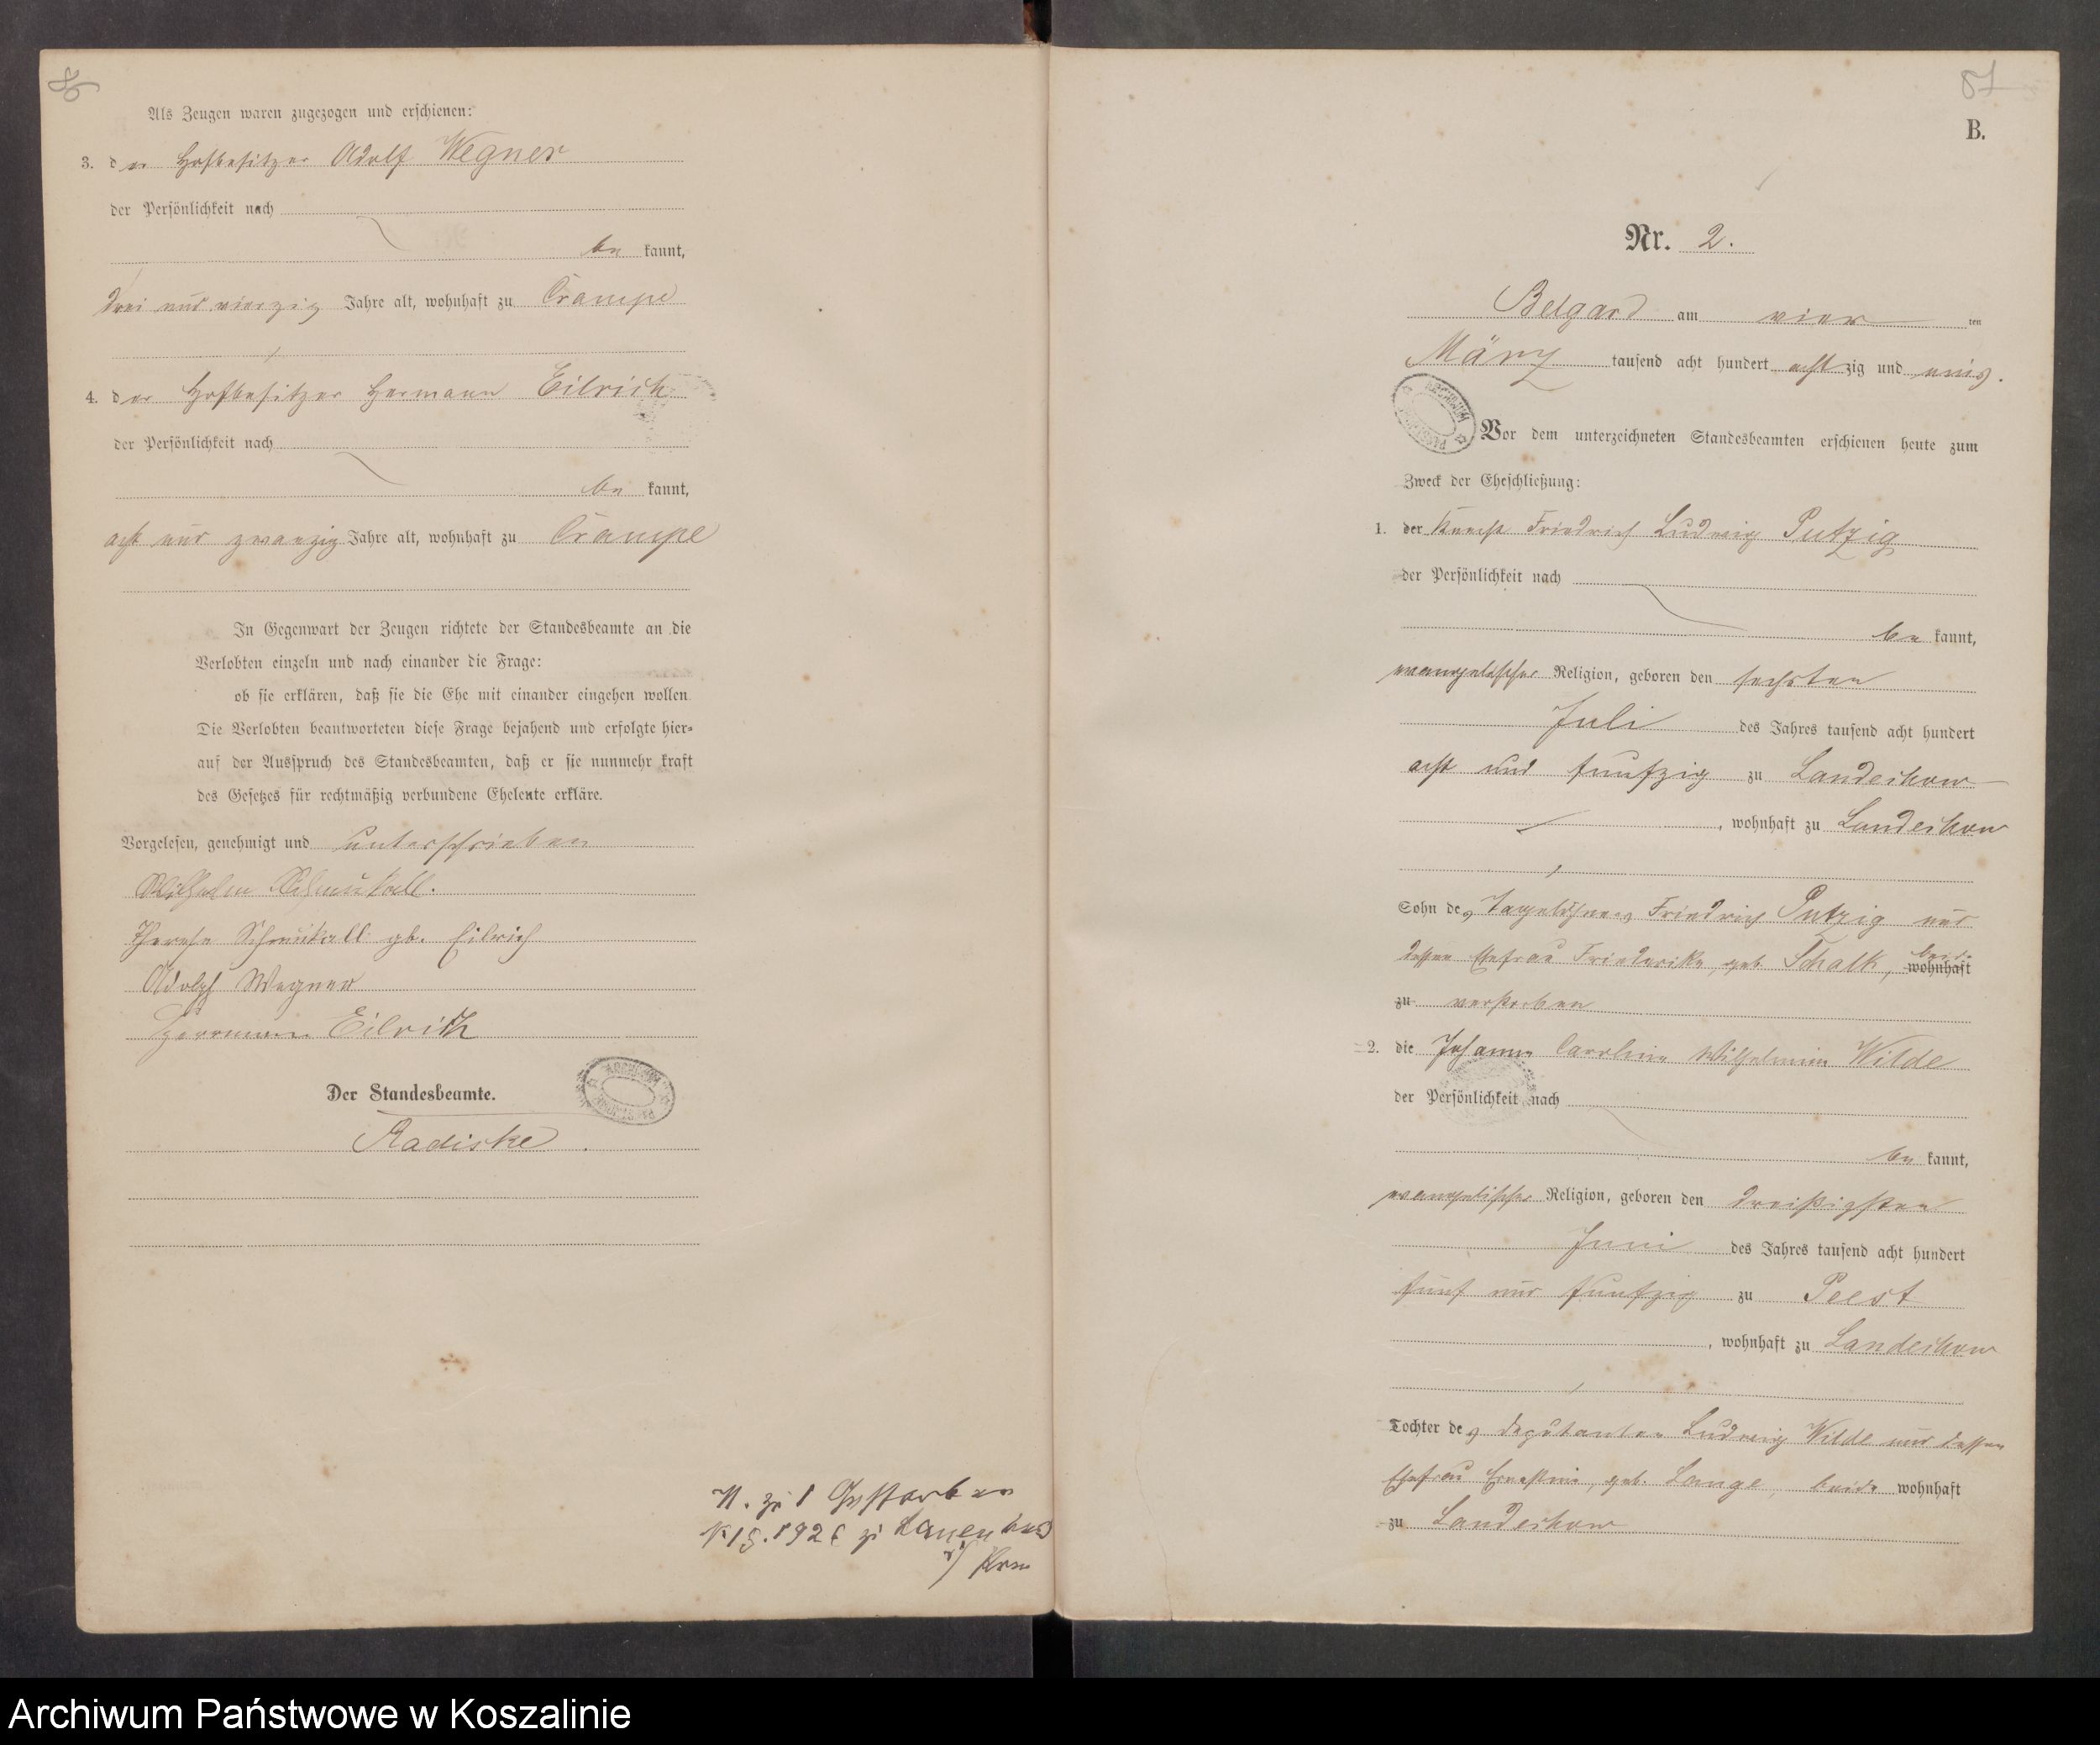 Als Zeugen waren zugezogen und erschienen:
3. der Hofbesitzer Adolf Wegner
der Persönlichkeit nach
be kannt,
drei und vierzig Jahre alt, wohnhaft zu Crampe
4. der Hofbesitzer Hermann Eilrich
der Persönlichkeit nach
be kannt,
acht und zwanzig Jahre alt, wohnhaft zu Crampe
In Gegenwart der Zeugen richtete der Standesbeamte an die
Verlobten einzeln und nach einander die Frage:
ob sie erklären, daß sie die Ehe mit einander eingehen wollen.
Die Verlobten beantworteten diese Frage bejahend und erfolgte hier-
auf der Ausspruch des Standesbeamten, daß er sie nunmehr kraft
des Gesetzes für rechtmäßig verbundene Eheleute erkläre.
Vorgelesen, genehmigt und unterschrieben
Wilhelm Schmukall.
Therese Schmukall gb. Eilrich
Adolph Wegner
Herrmann Eilrich
Der Standesbeamte.
Radiske.
zu 1 Gestorben
1926 zu Lauenburg
81
B.
Nr. 2.
Belgard am vier ten
März tausend acht hundert acht zig und eins.
Vor dem unterzeichneten Standesbeamten erschienen heute zum
Zweck der Eheschließung:
1. der Knecht Friedrich Ludwig Putzig
der Persönlichkeit nach
be kannt,
evangelischer Religion, geboren den sechsten
Juli des Jahres tausend acht hundert
acht und funfzig zu Landechow
, wohnhaft zu Landechow
Sohn des Tagelöhners Friedrich Putzig und
dessen Ehefrau Friederike geb. Schalk, beide wohnhaft
zu verstorben
2. die Johanne Caroline Wilhelmine Wilde
der Persönlichkeit nach
be kannt,
evangelischer Religion, geboren den dreißigsten
Juni des Jahres tausend acht hundert
fünf und funfzig zu Peest
, wohnhaft zu Landechow
Tochter des Deputanten Ludwig Wilde und dessen
Ehefrau Ernestine, geb. Lange, beide wohnhaft
zu Landechow
Archiwum Państwowe w Koszalinie